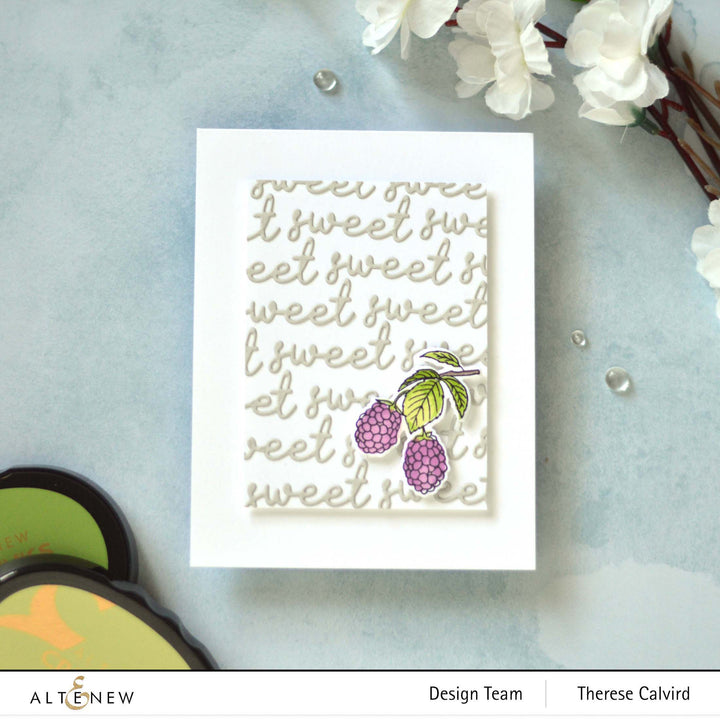 sweet swee
t sweet swe
eet sweet s
weet sweet
t sweet swe
eet sw
weet s
sweet sweet
EW
ALTENEW
Design Team
Therese Calvird